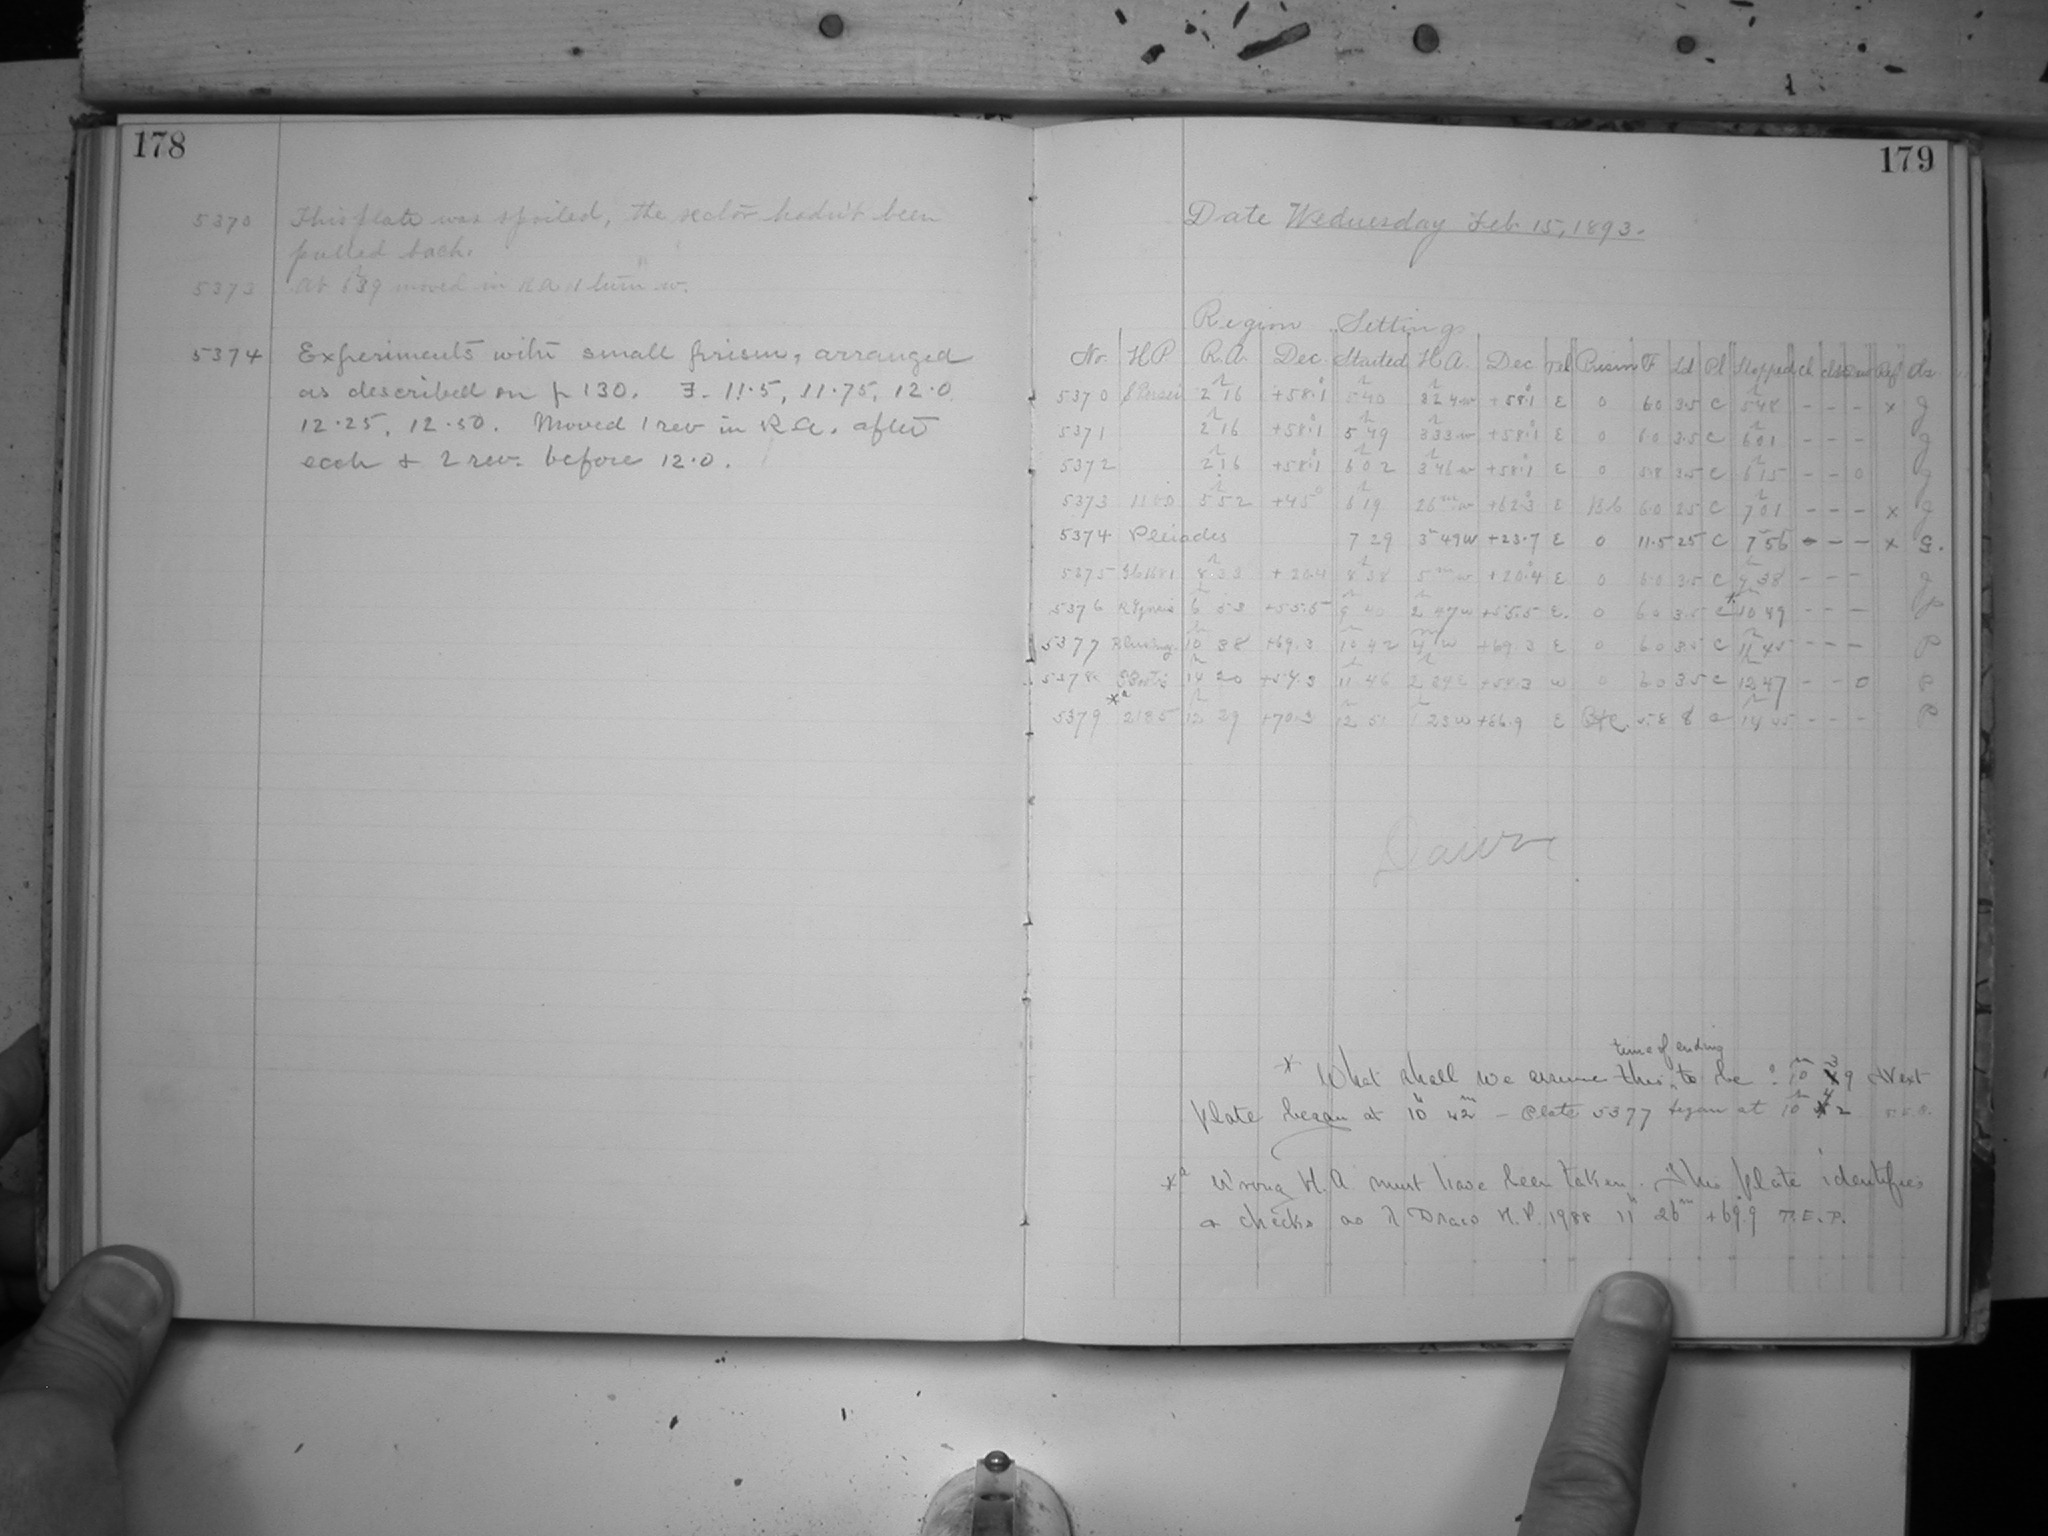 178
5370 This plate was spoiled, the sector hadn't been
pulled back.
5373 At 6 39 moved in R.A. 1 turn w.
5374 Experiments with small prism, arranged
as described on p 130. F. 11.5, 11.75, 12.0
12.25, 12.50. Moved 1 rev in R.A. after
each & 2 rev. before 12.0.
179
Date Wednesday Feb. 15, 1893.
Region Settings
No. H.P. R.A. Dec. Started H.A. Dec. Tel Prism F Ld Pl Stopped Cl
5370 S Persei 2h 16 +58°.1 5h 40 3h 24 w +58°.1 E 0 6.0 3.5 C 5h 48 - - - x g
5371 2h 16 +58°.1 5h 49 3h 33 w +58°.1 E 0 6.0 3.5 C 6h 01 - - - g
5372 2h 16 +58°.1 6h 02 3h 46 w +58°.1 E 0 5.8 3.5 C 6h 15 - - 0 g
5373 5h 52 +45° 6h 19 26m w +62°.3 E 6.0 25 C 7h 01 - - - x g
5374 Pleiades 7 29 3h 49 w +23.7 E 0 11.5 25 C 7h 56 - - - x S.
5375 8h 33 +20.4 8h 38 5m w +20°.4 E 0 6.0 3.5 C 9h 38 - - - g
5376 R Lyncis 6h 53 +55.5 9h 40 2h 47 w +55.5 E. 0 6.0 3.5 C *10h 49 - - - P
5377 10h 38 +69.3 10h 42 4m w +69.3 E 0 6.0 3.5 C 11h 45 - - - P
5378 S Bootis 14h 20 +54.3 11h 46 2h 34 E +54.3 w 0 6.0 3.5 C 12h 47 - - 0 P
5379 *a 2185 12h 29 +70.3 12h 51 1h 23 w +66.9 E 5.8 8 C 14h 45 - - - P
Dawn
time of ending
* What shall we assume this to be? 10h 39 Next
plate began at 10h 42m - Plate 5377 began at 10h 42
*a Wrong H.A. must have been taken. This plate identifies
& checks as λ Draco H.P. 1988 11h 26m +69°.9 T.E.P.